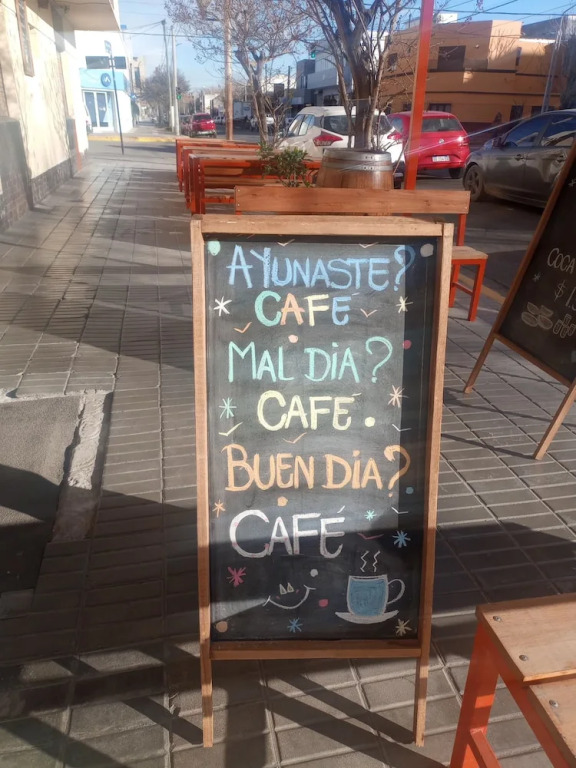 AYUNASTE?
CAFE
MAL DIA?
CAFÉ.
BUEN DIA?
CAFÉ
COCA
$1.